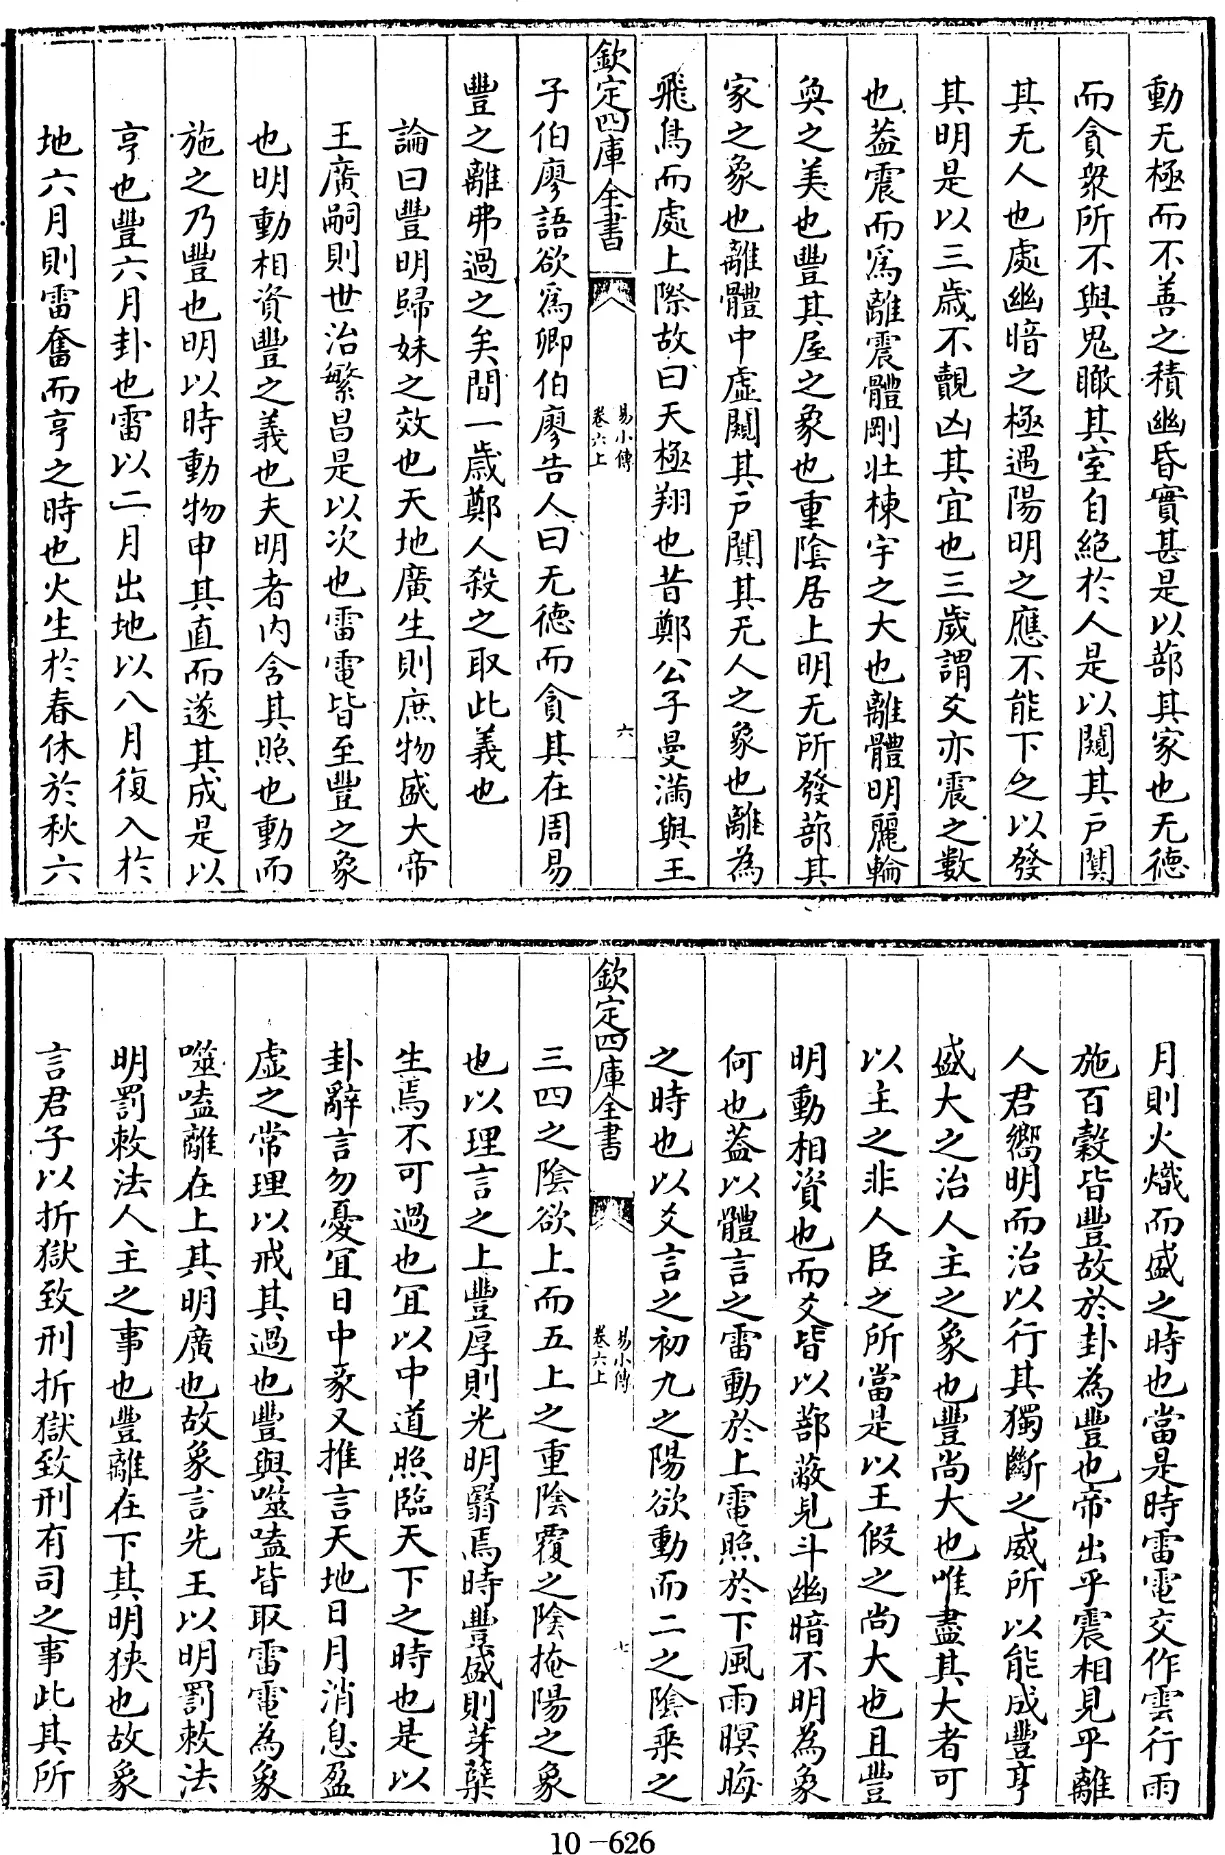 動无極而不善之積幽昏實甚是以蔀其家也无德
而貪衆所不與鬼瞰其室自絶於人是以闚其戸闃
其无人也處幽暗之極遇陽明之應不能下之以發
其明是以三歳不覿凶其宜也三歲謂爻亦震之數
也葢震而爲離震體剛壯棟宇之大也離體明麗輪
奐之美也豐其屋之象也重陰居上明无所發蔀其
家之象也離體中虚闚其戸闃其无人之象也離為
飛鳥而處上際故曰天極翔也昔鄭公子曼滿與王
欽定四庫全書
易小傳
卷六上
六
子伯廖語欲爲卿伯廖告人曰无德而貪其在周易
豐之離弗過之矣間一歳鄭人殺之取此義也
論曰豐明歸妹之效也天地廣生則庶物盛大帝
王廣嗣則世治繁昌是以次也雷電皆至豐之象
也明動相資豐之義也夫明者内含其照也動而
施之乃豐也明以時動物申其直而遂其成是以
亨也豐六月卦也雷以二月出地以八月復入於
地六月則雷奮而亨之時也火生於春休於秋六
月則火熾而盛之時也當是時雷電交作雲行雨
施百穀皆豐故於卦為豐也帝出乎震相見乎離
人君嚮明而治以行其獨斷之威所以能成豐亨
盛大之治人主之象也豐尚大也唯盡其大者可
以主之非人臣之所當是以王假之尚大也且豐
明動相資也而爻皆以蔀蔽見斗幽暗不明為象
何也葢以體言之雷動於上電照於下風雨暝晦
之時也以爻言之初九之陽欲動而二之陰乗之
欽定四庫全書
易小傳
卷六上
七
三四之陰欲上而五上之重陰覆之陰掩陽之象
也以理言之上豐厚則光明翳焉時豐盛則芽櫱
生焉不可過也冝以中道照臨天下之時也是以
卦辭言勿憂冝日中彖又推言天地日月消息盈
虚之常理以戒其過也豐與噬嗑皆取雷電為象
噬嗑離在上其明廣也故象言先王以明罰敕法
明罰敕法人主之事也豐離在下其明狹也故象
言君子以折獄致刑折獄致刑有司之事此其所
10-626